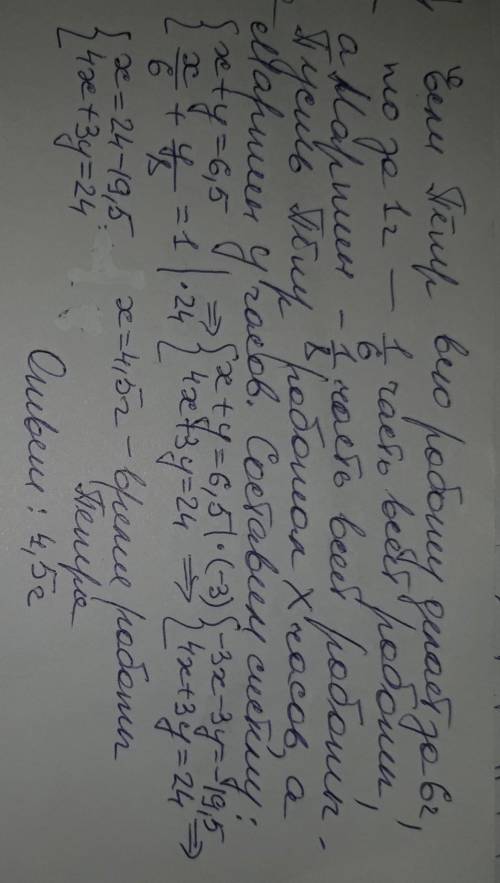 Если Пётр всю работу делает за 6 г,
то за 1 г — 1/6 часть всей работы,
а Мартин - 1/8 часть всей работы.
Пусть Пётр работал x часов, а
Мартин y часов. Составим систему:
{ x + y = 6,5
x/6 + y/8 = 1 | · 24 => { x + y = 6,5 | · (-3)
4x + 3y = 24 => { -3x - 3y = -19,5
4x + 3y = 24 =>
{ x = 24 - 19,5
4x + 3y = 24
x = 4,5 г - время работы
Петра
Ответ: 4,5 г